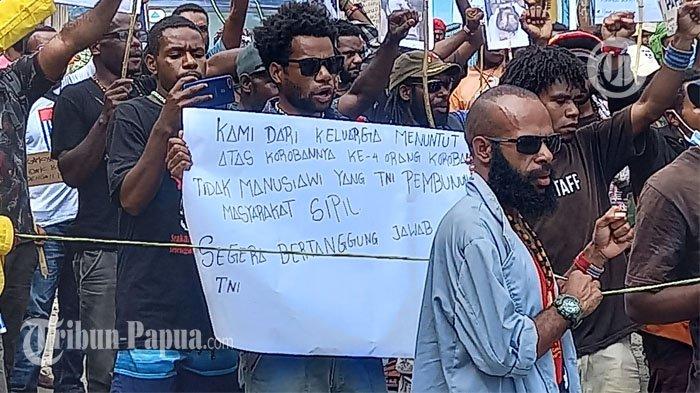 KAMI DARI KELUARGIA MENUNTUT
ATAS KOROBANNYA KE-4 ORANG KOROBA
TIDAK MANUSIAWI YANG TNI PEMBUNU
MASYARAKAT SIPIL
SEGERA BERTANGGUNG JAWAB
TNI
STAFF
Tribun-Papua.com